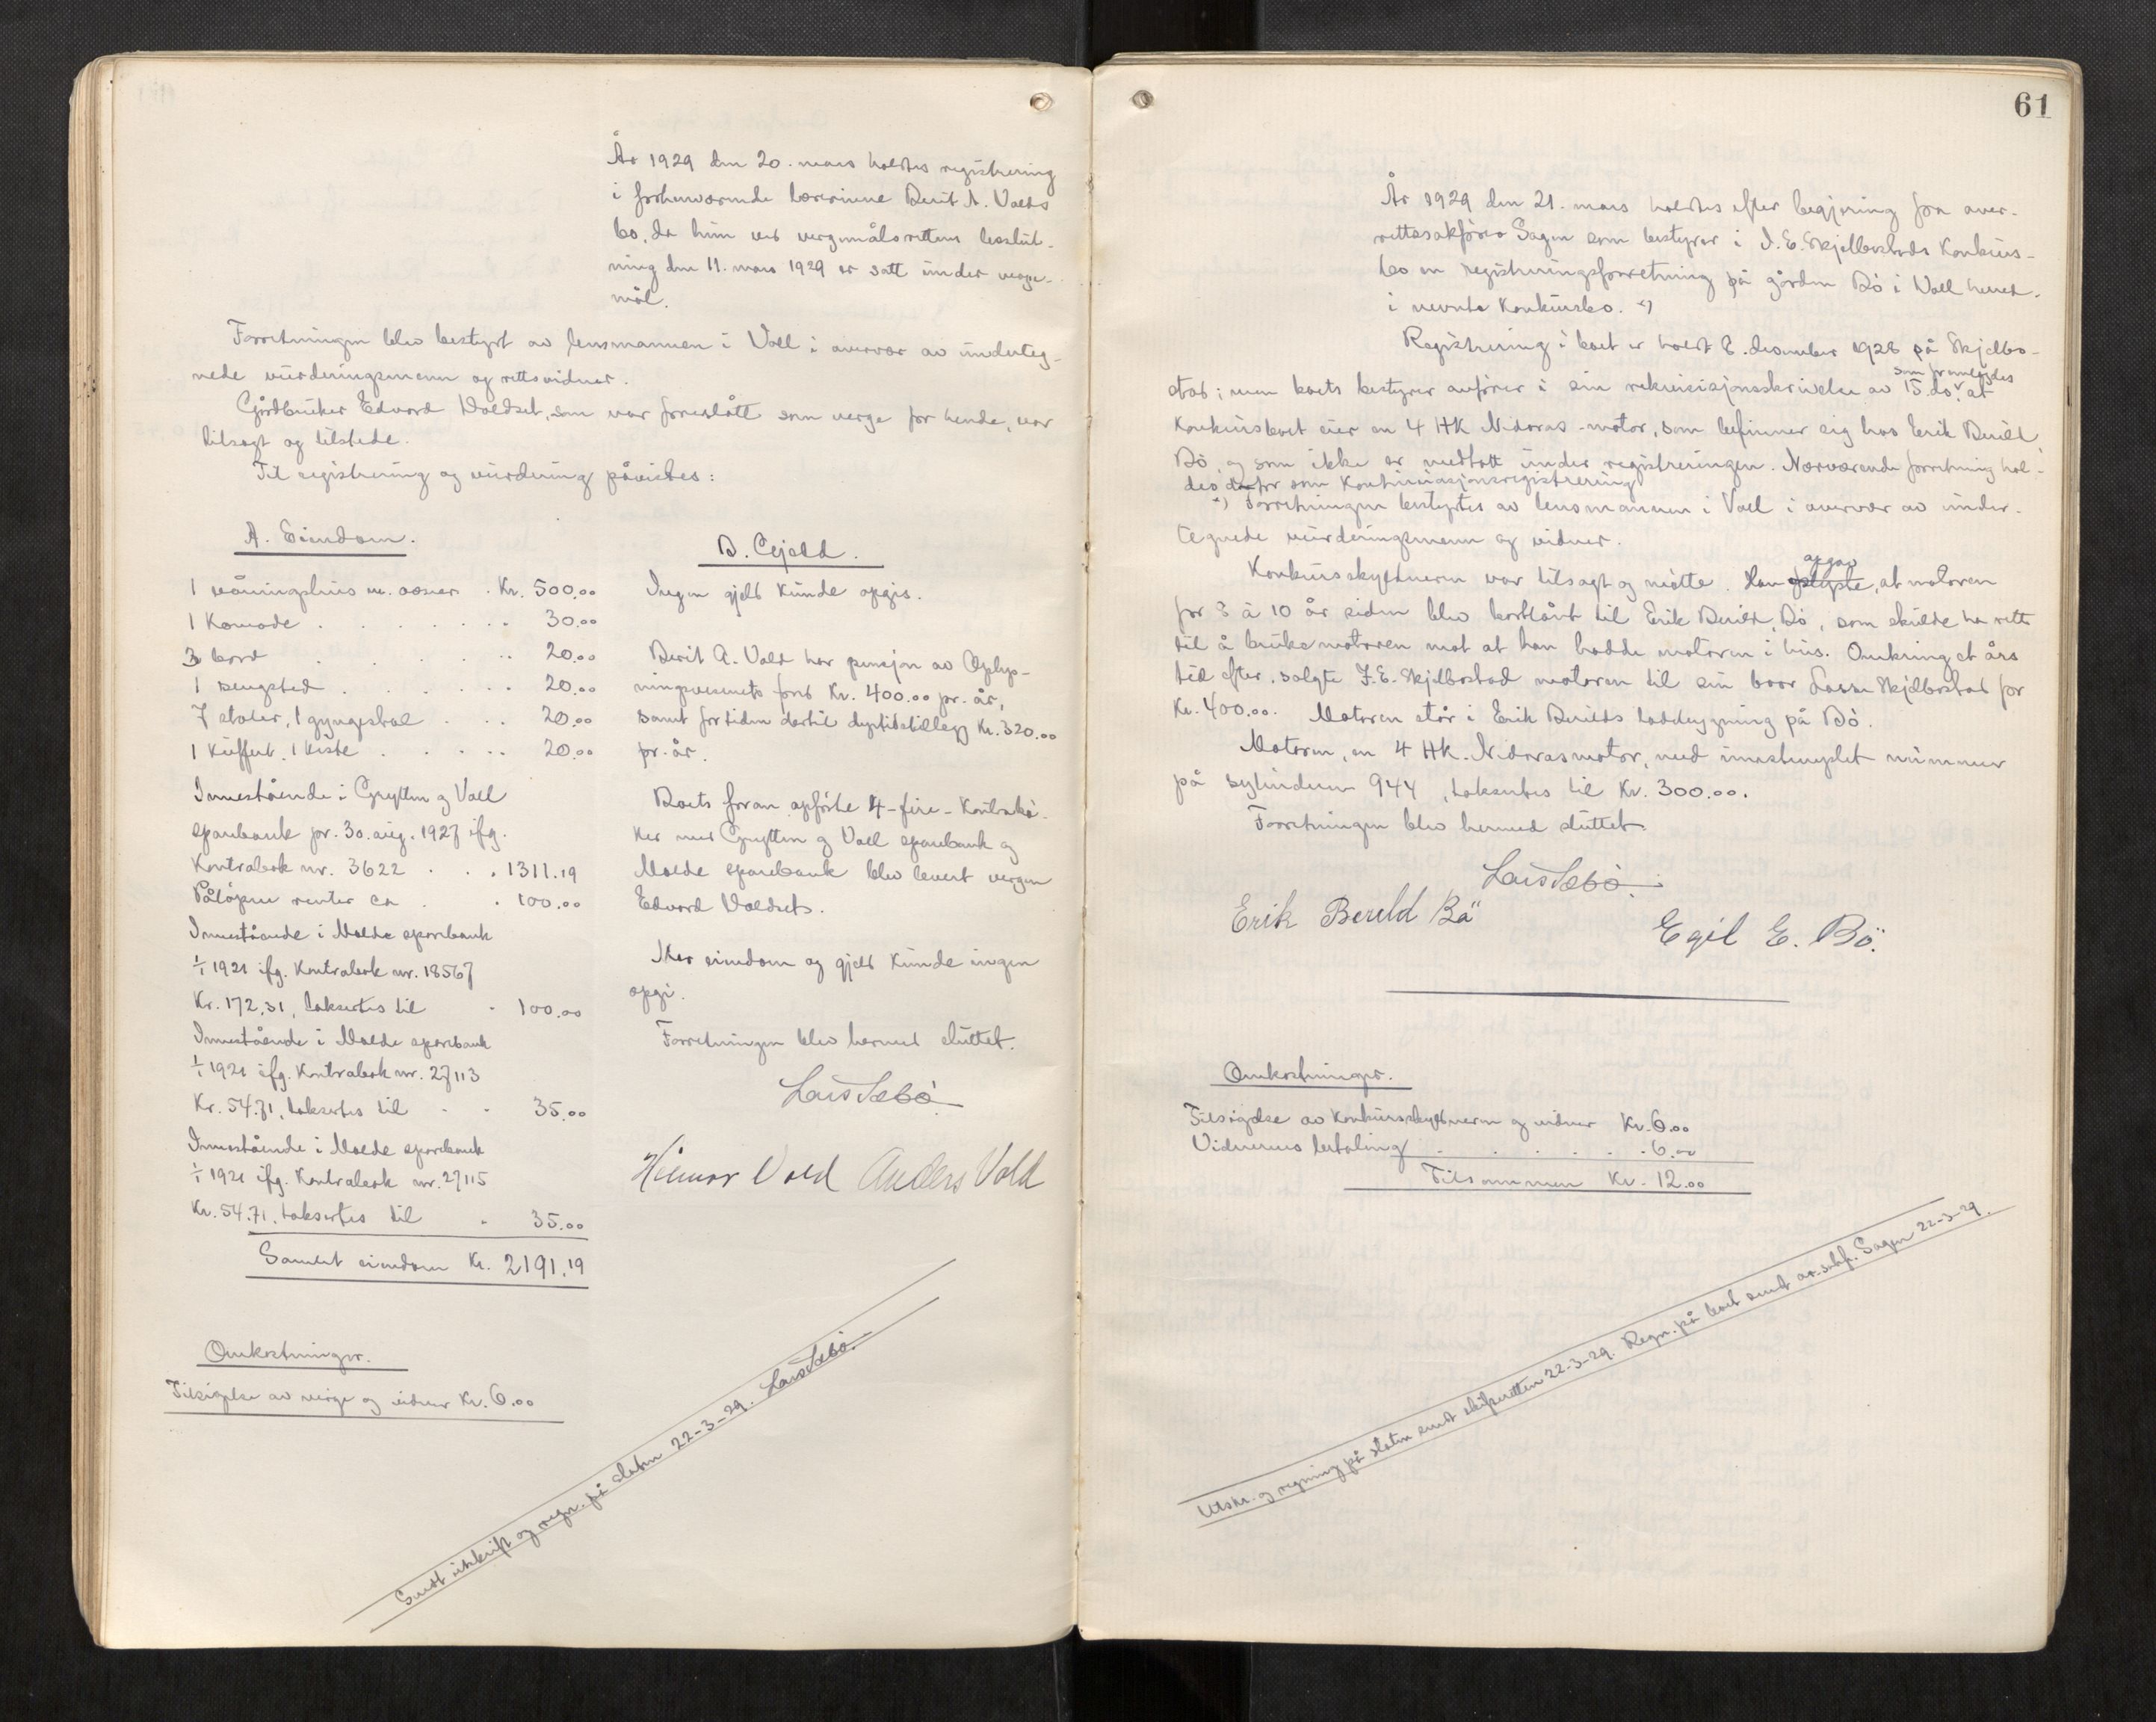 År 1929 den 20. mars holdtes registrering
i forhenværende lærerinne Berit A. Volds
bo, da hun ved vergemålsrettens beslut-
ning den 11. mars 1929 er satt under verge-
mål.
Forretningen blev bestyrt av lensmannen i Voll i overvær av underteg-
nede vurderingsmenn og rettsvidner.
Gårdbruker Edvard Voldset, som var foreslått som verge for hende, var
tilsagt og tilstede.
Til registrering og vurdering påvistes:
A. Eiendom.
1 våningshus m. ovner . Kr. 500.00
1 Komode . . . . . . . 30.00
3 bord . . . . . . 20.00
1 sengsted . . . . . . 20.00
7 stoler, 1 gyngestol . . . 20.00
1 Kuffert, 1 kiste . . . . . 20.00
Innestående i Grytten og Voll
sparebank pr. 30. aug. 1927 ifg.
Kontrabok nr. 3622 . . . 1311.19
Påløpne renter ca . . 100.00
Innestående i Molde sparebank
1/1 1921 ifg. Kontrabok nr. 18567
Kr. 172.31, taksertes til . 100.00
Innestående i Molde sparebank
1/1 1921 ifg. Kontrabok nr. 27113
Kr. 54.71, taksertes til . . 35.00
Innestående i Molde sparebank
1/1 1921 ifg. Kontrabok nr. 27115
Kr. 54.71, taksertes til . 35.00
Samlet eiendom Kr. 2191.19
Omkostninger.
Tilsigelse av verge og vidner Kr. 6.00
B. Gjeld.
Ingen gjeld kunde opgis.
Berit A. Vold har pensjon av Oplys-
ningsvesenets fond Kr. 400.00 pr. år,
samt for tiden dertil dyrtidstillegg Kr. 320.00
pr. år.
Boets foran opførte 4-fire-Kontrabø-
ker med Grytten og Voll sparebank og
Molde sparebank blev levert vergen
Edvard Voldset.
Mer eiendom og gjeld kunde ingen
opgi.
Forretningen blev hermed sluttet.
Lars Sæbö.
Hilmar Vold Anders Vold
Sendt utskrift og regn. på staten 22-3-29. Lars Sæbö.
61
År 1929 den 21. mars holdtes efter begjæring fra over-
rettssakfører Sagen som bestyrer i J. E. Skjelbostads Konkurs-
bo en registreringsforretning på gården Bö i Voll herred
i nevnte Konkursbo. x)
Registrering i boet er holdt 8. desember 1928 på Skjelbo-
stad; men boets bestyrer anfører i sin rekvisisjonsskrivelse av 15. ds. som fremlegdes at
Konkursboet eier en 4 HK Nidaros-motor, som befinner sig hos Erik Berild
Bö, og som ikke er medtatt under registreringen. Nærværende forretning hol-
des derfor som Kontinuasjonsregistrering
x) Forretningen bestyrtes av lensmannen i Voll i overvær av under-
tegnede vurderingsmenn og vidner.
Konkursskyldneren var tilsagt og møtte. Han oplyste opgav, at motoren
for 8 à 10 år siden blev bortlånt til Erik Berild, Bö, som skulde ha rett
til å bruke motoren mot at han hadde motoren i hus. Omkring et års
tid efter, solgte J. E. Skjelbostad motoren til sin bror Lasse Skjelbostad for
Kr. 400.00. Motoren står i Erik Berilds ladebygning på Bö.
Motoren, en 4 HK. Nidarosmotor, med innstemplet nummer
på sylinderen 944, taksertes til Kr. 300.00.
Forretningen blev hermed sluttet.
Lars Sæbö.
Erik Berild Bö
Egil E. Bö.
Omkostninger.
Tilsigelse av Konkursskyldneren og vidner Kr. 6.00
Vidnernes betaling . . . . . . 6.00
Tilsammen Kr. 12.00
Utskr. og regning på staten sendt skifteretten 22-3-29. Regn. på boet sendt o.r.sakf. Sagen 22-3-29.